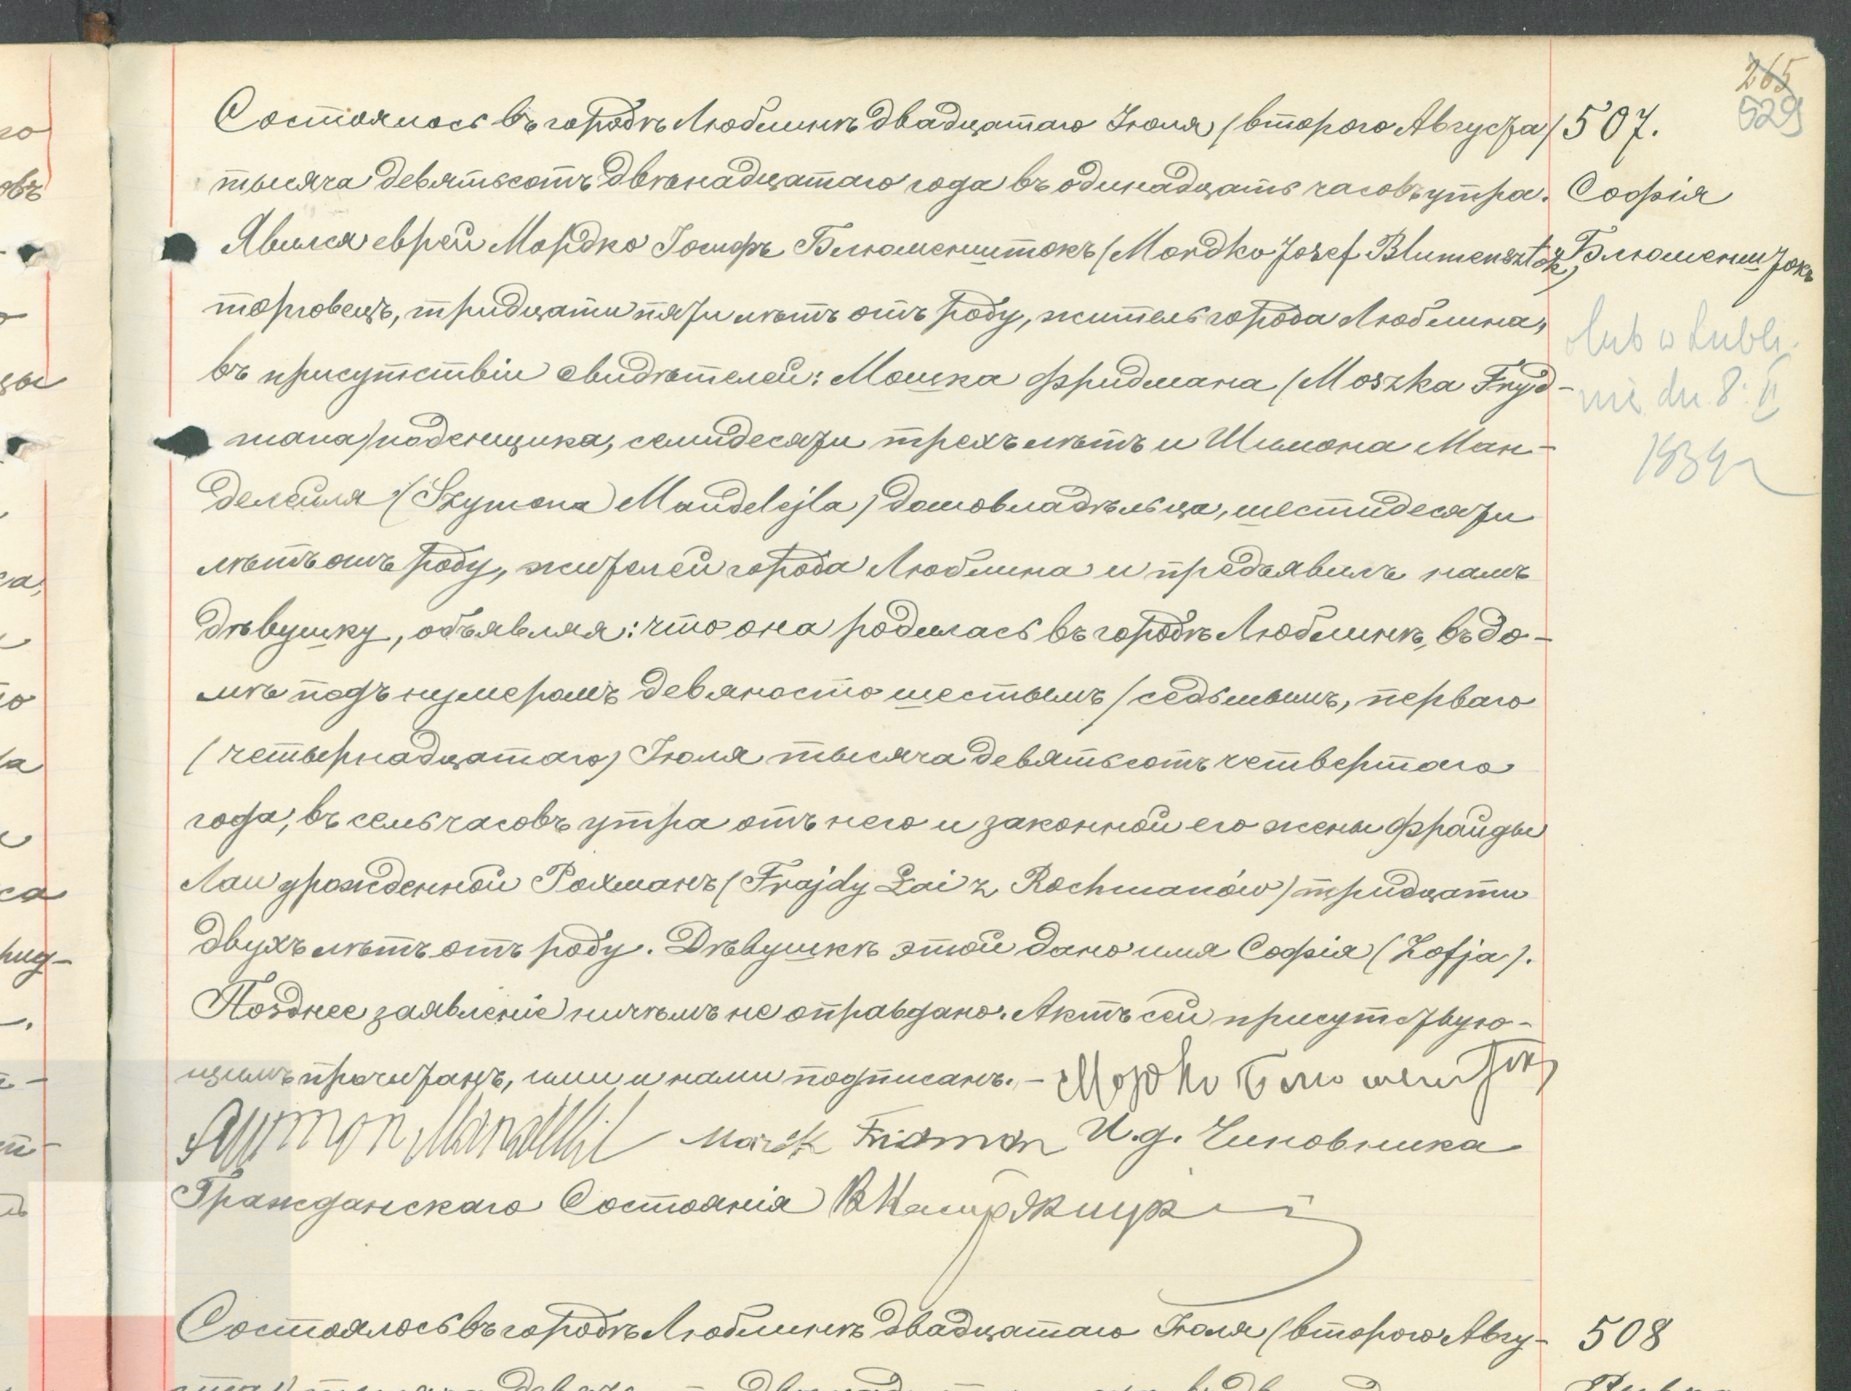 265
529
Состоялось въ городѣ Люблинѣ двадцатаго Іюля (второго Августа)
507.
тысяча девятьсотъ двѣнадцатаго года въ одинадцать часовъ утра.
Софія
Явился еврей Мордко Іосифъ Блюменштокъ (Mordko Josef Blumensztok)
Блюменштокъ
торговецъ, тридцати пяти лѣтъ отъ роду, житель города Люблина,
ślub w Lubli-
въ присутствіи свидѣтелей: Мошка Фридмана (Moszka Fryd-
nie dn 8. II
мана) поденщика, семидесяти трехъ лѣтъ и Шимона Ман-
1939 r
делейля (Szymona Mandelejla) домовладѣльца, шестидесяти
лѣтъ отъ роду, жителей города Люблина и предъявилъ намъ
дѣвушку, объявляя: что она родилась въ городѣ Люблинѣ, въ до-
мѣ подъ нумеромъ девяносто шестымъ / седьмымъ, перваго
(четырнадцатаго) Іюля тысяча девятьсотъ четвертаго
года, въ семь часовъ утра отъ него и законной его жены Фрайды
Лаи урожденной Рохманъ (Frajdy Łai z Rochmanów) тридцати
двухъ лѣтъ отъ роду. Дѣвушкѣ этой дано имя Софія (Zofja).
Позднее заявленіе ничѣмъ не оправдано. Актъ сей присутствую-
щимъ прочитанъ, ими и нами подписанъ. – Мордко Блюменшток
Szymon Mandelejl Moszk Fridman И.д. Чиновника
Гражданскаго Состоянія
Состоялось въ городѣ Люблинѣ двадцатаго Іюля (второго Авгу-
508